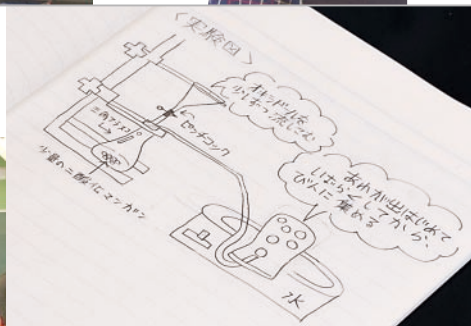 〈実験図〉
オキシドールを
少しずつ流しこむ
ピンチコック
三角フラスコ
少量の二酸化マンガン
あわが出はじめて
しばらくしてから、
びんに集める
水